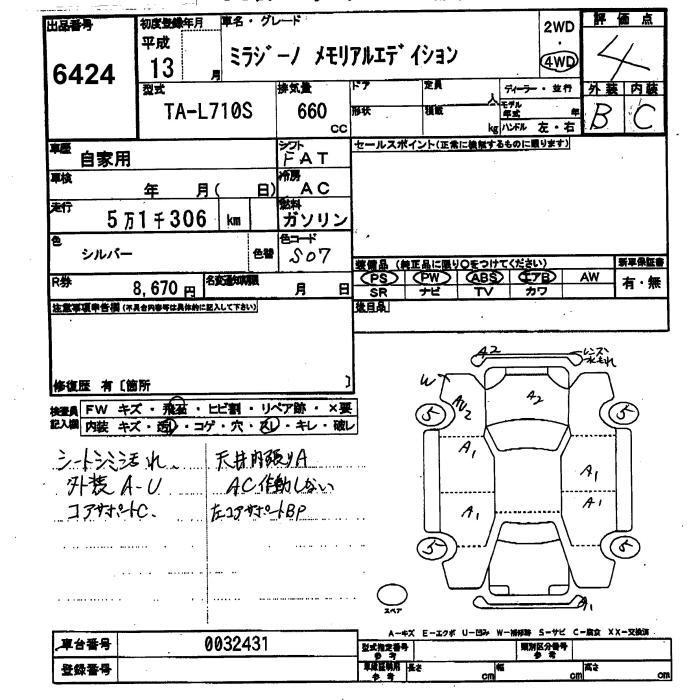 出品番号
6424
初度登録年月
平成
13 月
車名・グレード
ミラジーノ メモリアルエディション
2WD
・
4WD
評価点
4
外装 内装
B C
型式
TA-L710S
排気量
660
cc
ドア
定員
人
形状
積載
kg
ディーラー・並行
モデル
年式 年
ハンドル 左・右
車歴
自家用
シフト
FAT
セールスポイント(正常に機能するものに限ります)
車検
年 月( 日)
冷房
AC
走行
5万1千306 km
燃料
ガソリン
色
シルバー
色替
色コード
S07
R券
8,670円
名変通知期限
月 日
装備品 (純正品に限り○をつけてください)
PS PW ABS エアB AW
SR ナビ TV カワ
新車保証書
有・無
後日品
注意事項申告欄(不具合内容等は具体的に記入して下さい)
修復歴 有〔箇所 〕
検査員
記入欄
FW キズ・飛石・ヒビ割・リペア跡・×要
内装 キズ・汚レ・コゲ・穴・スレ・キレ・破レ
シートシミ汚れ
天井内張りA
外装 A-U
AC作動しない
コアサポートC
左コアサポートBP
A2
レンズ
水もれ
W
AU2
A2
5
5
A1
A1
A1
A1
5
5
A1
スペア
A-キズ E-エクボ U-凹み W-補修跡 S-サビ C-腐食 XX-交換済
車台番号
0032431
登録番号
型式指定番号
参考
類別区分番号
参考
車庫証明用
参考
長さ
cm
幅
cm
高さ
cm